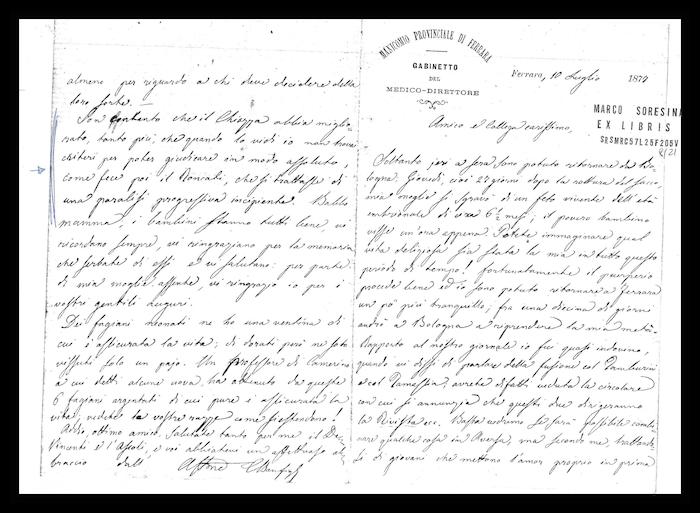 MANICOMIO PROVINCIALE DI FERRARA
GABINETTO
DEL
MEDICO-DIRETTORE
Ferrara, 10 Luglio 1879
MARCO SORESINA
EX LIBRIS
SRSMRC57L25F205V
Amico e Collega carissimo,
Soltanto jeri a sera sono potuto retornare da Bo-
logna. Giovedì, cioè 27 giorni dopo la rottura del sacco,
mia moglie si sgravò di un feto vivente dell'età
embrionale di 6½ mesi; il povero bambino
visse un'ora appena. Potete immaginare qual
vita deliziosa sia stata la mia in tutto questo
periodo di tempo! Fortunatamente il puerperio
procede bene ed io sono potuto retornare a Ferrara
un pò più tranquillo; fra una decina di giorni
andrò a Bologna a riprendere la mia metà.
Rapporto al nostro giornale io fui quasi indovino,
quando vi dissi di parlare della fusione col Tamburini
e col Tamassia; avrete difatti veduta la circolare
con cui si annunzia che questi due dirigeranno
la Rivista ecc. Basta vedremo se sarà possibile combi-
nare qualche cosa in Aversa, ma secondo me, trattando-
si di giovani che mettono l'amor proprio in prima
almeno per riguardo a chi deve decidere della
loro sorte.
Son contento che il Chiozza abbia miglio-
rato, tanto più, che quando lo vidi io non trovai
criteri per poter giudicare in modo assoluto,
come fece poi il Roncati, che si trattasse di
una paralisi progressiva incipiente. Babbo
mamma, i bambini stanno tutti bene, vi
ricordano sempre, vi ringraziano per la memoria
che serbate di essi e vi salutano: per parte
di mia moglie assente, vi ringrazio io per i
vostri gentili auguri.
Dei fagiani neonati ne ho una ventina di
cui è assicurata la vita; di dorati però ne sono
vissuti solo un pajo. Un professore di Camerino
a cui detti alcune uova, ha ottenuto da queste
6 fagiani argentati di cui pure è assicurata la
vita; vedete le vostre razze come si estendono!
Addio, ottimo amico. Salutate tanto per me il De
Vincenti e l'Ascoli, e voi abbiatevi un affettuoso ab-
braccio dall'
Affmo